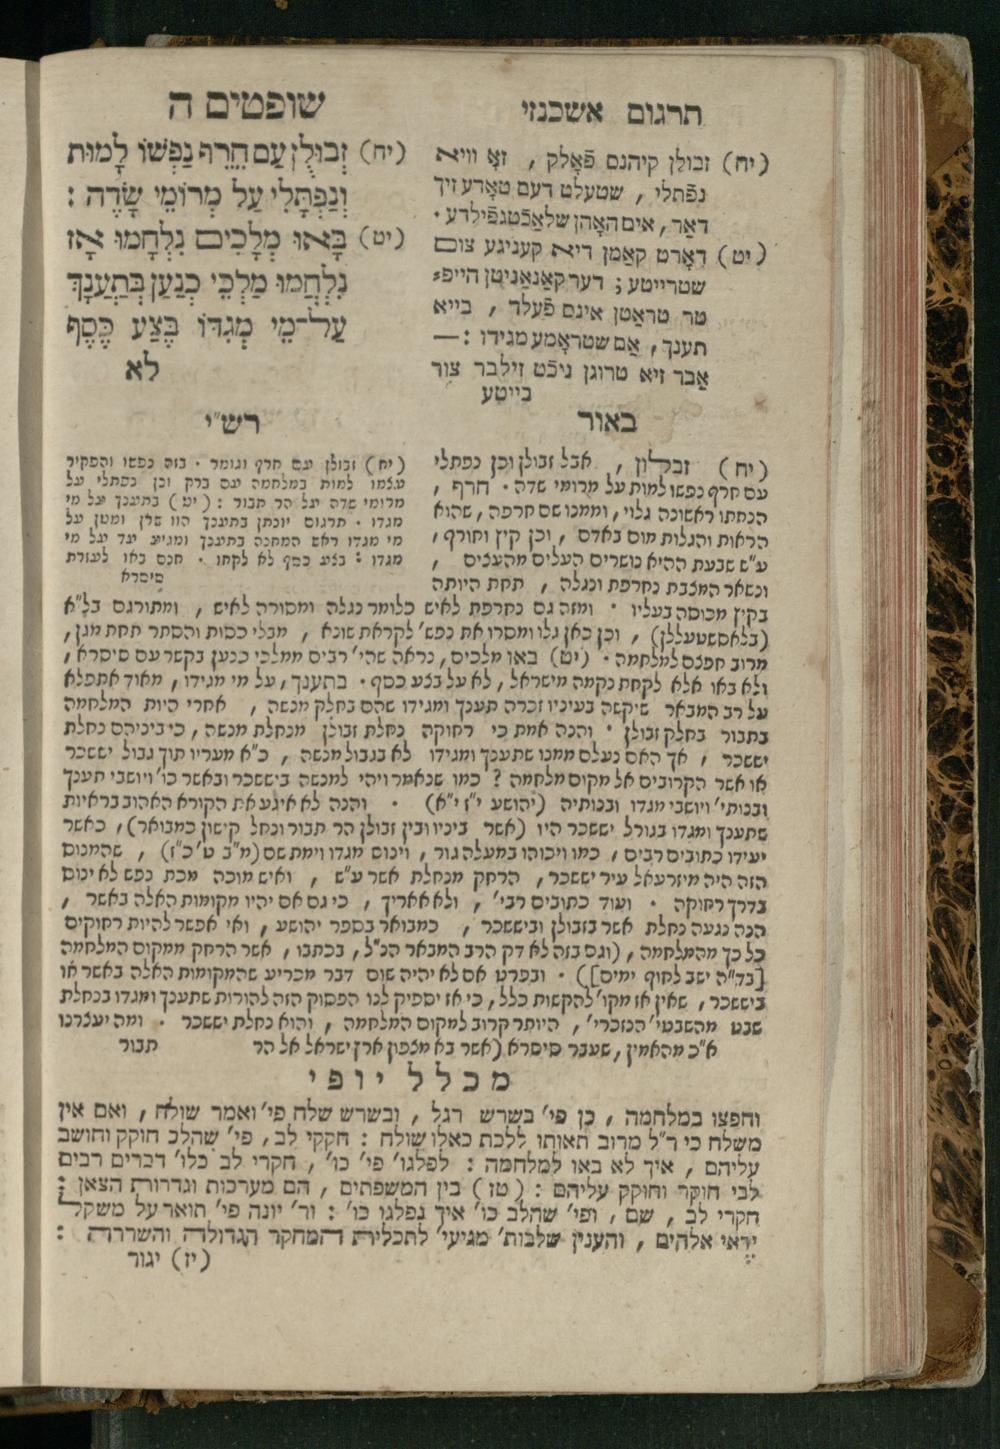 תרגום אשכנזי
שופטים ה
(יח) זְבוּלֻן עַם חֵרֵף נַפְשׁוֹ לָמוּת
וְנַפְתָּלִי עַל מְרוֹמֵי שָׂדֶה :
(יט) בָּאוּ מְלָכִים נִלְחָמוּ אָז
נִלְחֲמוּ מַלְכֵי כְנַעַן בְּתַעְנָךְ
עַל־מֵי מְגִדּוֹ בֶּצַע כֶּסֶף
לא
(יח) זבולן קיהנס פֿאָלק , זאָ וויא
נפֿתלי , שטעלט דעם טאָדע זיך
דאַר, אים האָהן שלאַכֿטגפֿילדע .
(יט) דאָרט קאַמן דיא קעניגע צום
שטרייטע ; דער קאַנאַניטן הייפּ⸗
טר טראַטן אינס פֿעלד , בייא
תענך, אַם שטראָמע מגידו : —
אבר זיא טרוגן ניכֿט זילבר צור
בייטע
רש״י
(יח) זבולן עם חרף וגומר . בזה נפשו והפקיר
עצמו למות במלחמה עם ברק וכן נפתלי על
מרומי שדה על הר תבור : (יט) בתענך על מי
מגדו . תרגום יונתן בתענך הוו שרן ומטן על
מי מגדו ראש המחנה בתענך ומגיע עד על מי
מגדו : בצע כסף לא לקחו . חנם באו לעזרת
סיסרא
באור
(יח) זבולון , אבל זבולן וכן נפתלי
עם חרף נפשו למות על מרומי שדה . חרף ,
הנחתו ראשונה גלוי, וממנו שם חרפה, שהוא
הראות והגלות מום באדם , וכן קיץ וחורף,
ע״ש שבעת ההיא נושרים העלים מהעצים ,
ונשאר המצבת נחרפת ונגלה , תחת היותה
בקיץ מכוסה בעליו . ומזה גם נחרפת לאיש כלומר נגלה ומסורה לאיש , ומתורגם בל״א
(בלאסשטעללן) , וכן כאן גלו ומסרו את נפש׳ לקראת שונא , מבלי כסות והסתר תחת מגן,
מרוב חפצם למלחמה . (יט) באו מלכים, נראה שהי׳ רבים ממלכי כנען בקשר עם סיסרא,
ולא באו אלא לקחת נקמה מישראל, לא על בצע כסף . בתענך, על מי מגידו, מאוד אתפלא
על רב המבאר שיקשה בעיניו זכרה תענך ומגידו שהם בחלק מנשה , אחרי היות המלחמה
בתבור בחלק זבולן . והנה אמת כי רחוקה נחלת זבולן מנחלת מנשה, כי ביניהם נחלת
יששכר , אך האם נעלם ממנו שתענך ומגידו לא בגבול מנשה , כ״א מעריו תוך גבול יששכר
או אשר הקרובים אל מקום מלחמה ? כמו שנאמר ויהי למנשה ביששכר ובאשר כו׳ ויושבי תענך
ובנותי׳ ויושבי מגדו ובנותיה (יהושע י״ז י״א) . והנה לא איגע את הקורא האהוב בראיות
שתענך ומגדו בגורל יששכר היו (אשר ביניו ובין זבולן הר תבור ונחל קישון כמבואר), כאשר
יעידו כתובים רבים , כמו ויכוהו במעלה גור , וינוס מגדו וימת שם (מ״ב ט׳ כ״ז) , שהמנוס
הזה היה מיזרעאל עיר יששכר, הרחק מנחלת אשר ע״ש , ואיש מוכה מכת נפש לא ינוס
בדרך רחוקה . ועוד כתובים רבי׳ , ולא אאריך , כי גם אם יהיו מקומות האלה באשר ,
הנה נגעה נחלת אשר בזבולן וביששכר , כמבואר בספר יהושע, ואי אפשר להיות רחוקים
כל כך מהמלחמה, (וגם בזה לא דק הרב המבאר הנ״ל, בכתבו, אשר הרחק ממקום המלחמה
[בד״ה ישב לחוף ימים]) . ובפרט אם לא יהיה שום דבר מכריע שהמקומות האלה באשר או
ביששכר, שאין אז מקו׳ להקשות כלל, כי אז יספיק לנו הפסוק הזה להורות שתענך ומגדו בנחלת
שבט מהשבטי׳ הנזכרי׳, היותר קרוב למקום המלחמה , והוא נחלת יששכר . ומה יעצרנו
א״כ מהאמין, שעבר סיסרא (אשר בא מצפון ארץ ישראל אל הר
תבור
מכלל יופי
וחפצו במלחמה , כן פי׳ בשרש רגל , ובשרש שלח פי׳ ואמר שולח , ואם אין
משלח כי ר״ל מרוב תאותו ללכת כאלו שולח : חקקי לב, פי׳ שהלב חוקק וחושב
עליהם , איך לא באו למלחמה : לפלגו׳ פי׳ כו׳ , חקרי לב כלו׳ דברים רבים
לבי חוקר וחוקק עליהם : (טז) בין המשפתים , הם מערכות וגדרורת הצאן :
חקרי לב , שם , ופי׳ שהלב כו׳ איך נפלגו כו׳ : ור׳ יונה פי׳ תואר על משקל
יראי אלהים , והענין שלבות׳ מגיעי׳ לתכלית המחקר הגדולה והשררה :
(יז) יגור